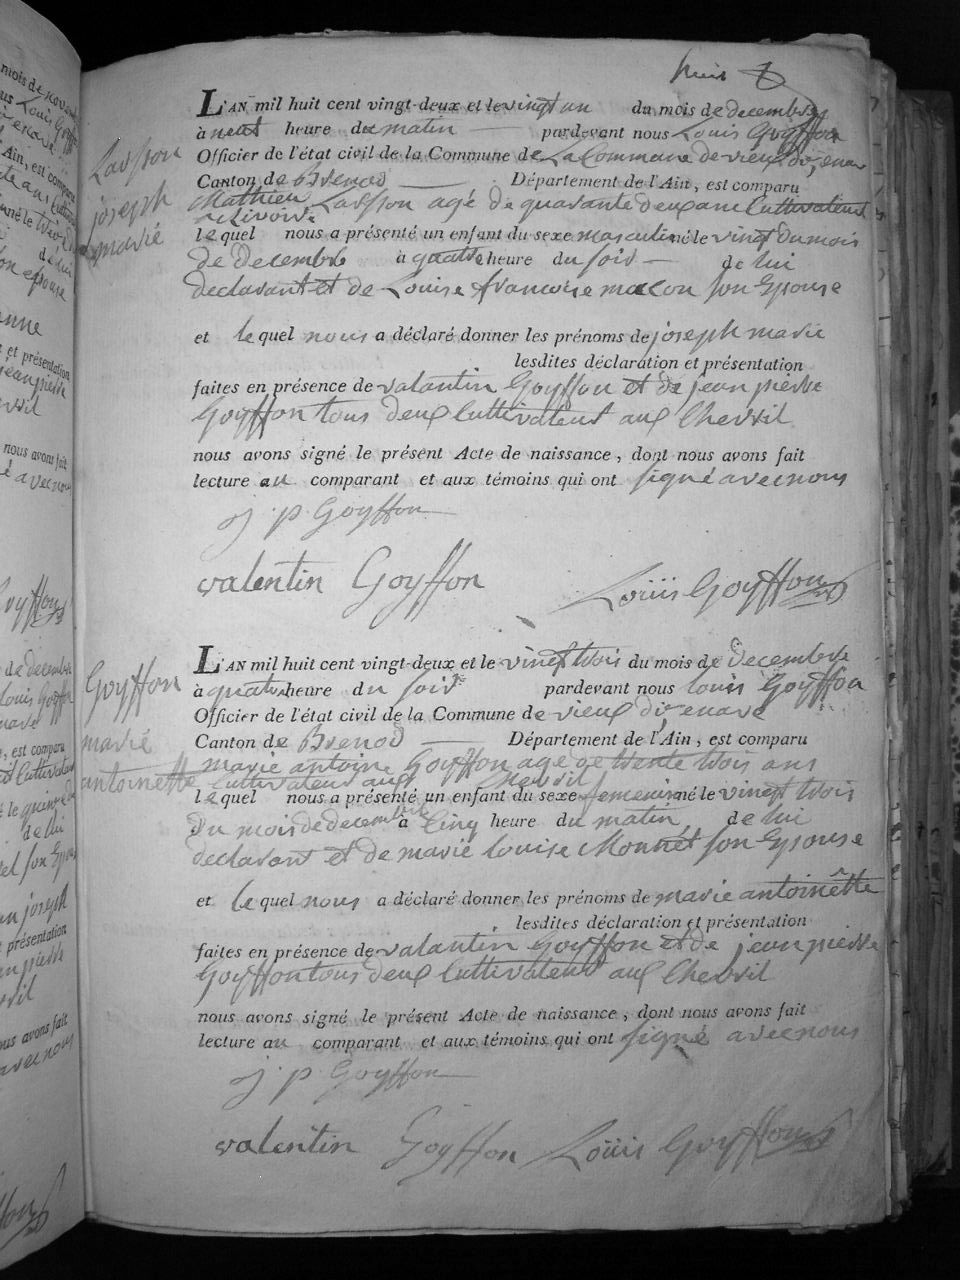 huit
L'AN mil huit cent vingt-deux et le vingt un du mois de decembre
à neuf heure du matin pardevant nous Louis Goyffon
Officier de l'état civil de la Commune de La Commune de vieux d'izenave
Canton de Brenod Département de l'Ain, est comparu
Mathieu Lasson agé de quarante deux ans Cultivateur
lequel nous a présenté un enfant du sexe masculin né le vingt du mois
de decembre à quatre heure du soir de lui
declarant et de Louise francoise macon son Epouse
et lequel nous a déclaré donner les prénoms de joseph marie
lesdites déclaration et présentation
faites en présence de valantin Goyffon et de jean pierre
Goyffon tous deux Cultivateurs aux Chevril
nous avons signé le présent Acte de naissance, dont nous avons fait
lecture au comparant et aux témoins qui ont signé avec nous
j p Goyffon
valentin Goyffon Loüis Goyffon
Lasson
joseph
marie
L'AN mil huit cent vingt-deux et le vingt trois du mois de decembre
à quatre heure du soir pardevant nous louis Goyffon
Officier de l'état civil de la Commune de vieux d'izenave
Canton de Brenod Département de l'Ain, est comparu
marie antoine Goyffon agé de trente trois ans
Cultivateur aux Chevril
lequel nous a présenté un enfant du sexe femenin né le vingt trois
du mois de decembre à Cinq heure du matin de lui
declarant et de marie louise Monnet son Epouse
et lequel nous a déclaré donner les prénoms de marie antoinette
lesdites déclaration et présentation
faites en présence de valantin Goyffon et de jean pierre
Goyffon tous deux Cultivateurs aux Chevril
nous avons signé le présent Acte de naissance, dont nous avons fait
lecture au comparant et aux témoins qui ont signé avec nous
j p Goyffon
valentin Goyffon Loüis Goyffon
Goyffon
marie
antoinette